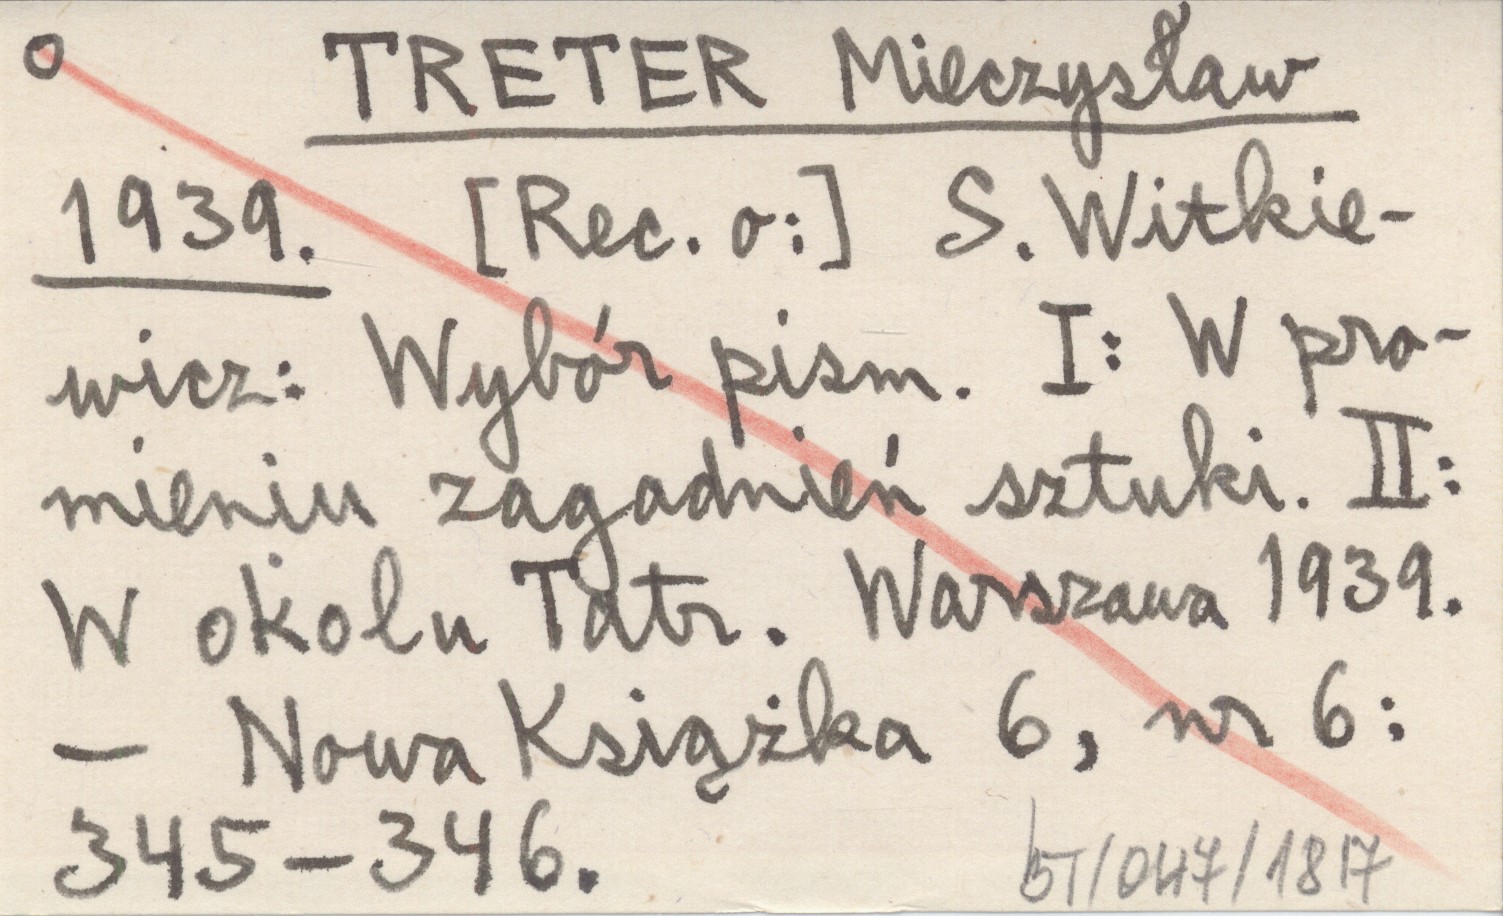 o TRETER Mieczysław
1939. [Rec. o:] S. Witkie-
wicz: Wybór pism. I: W pro-
mieniu zagadnień sztuki. II:
W okolu Tatr. Warszawa 1939.
— Nowa Książka 6, nr 6:
345–346.
bT/047/1817